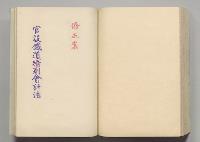 修正案
官設鐵道特別會計法